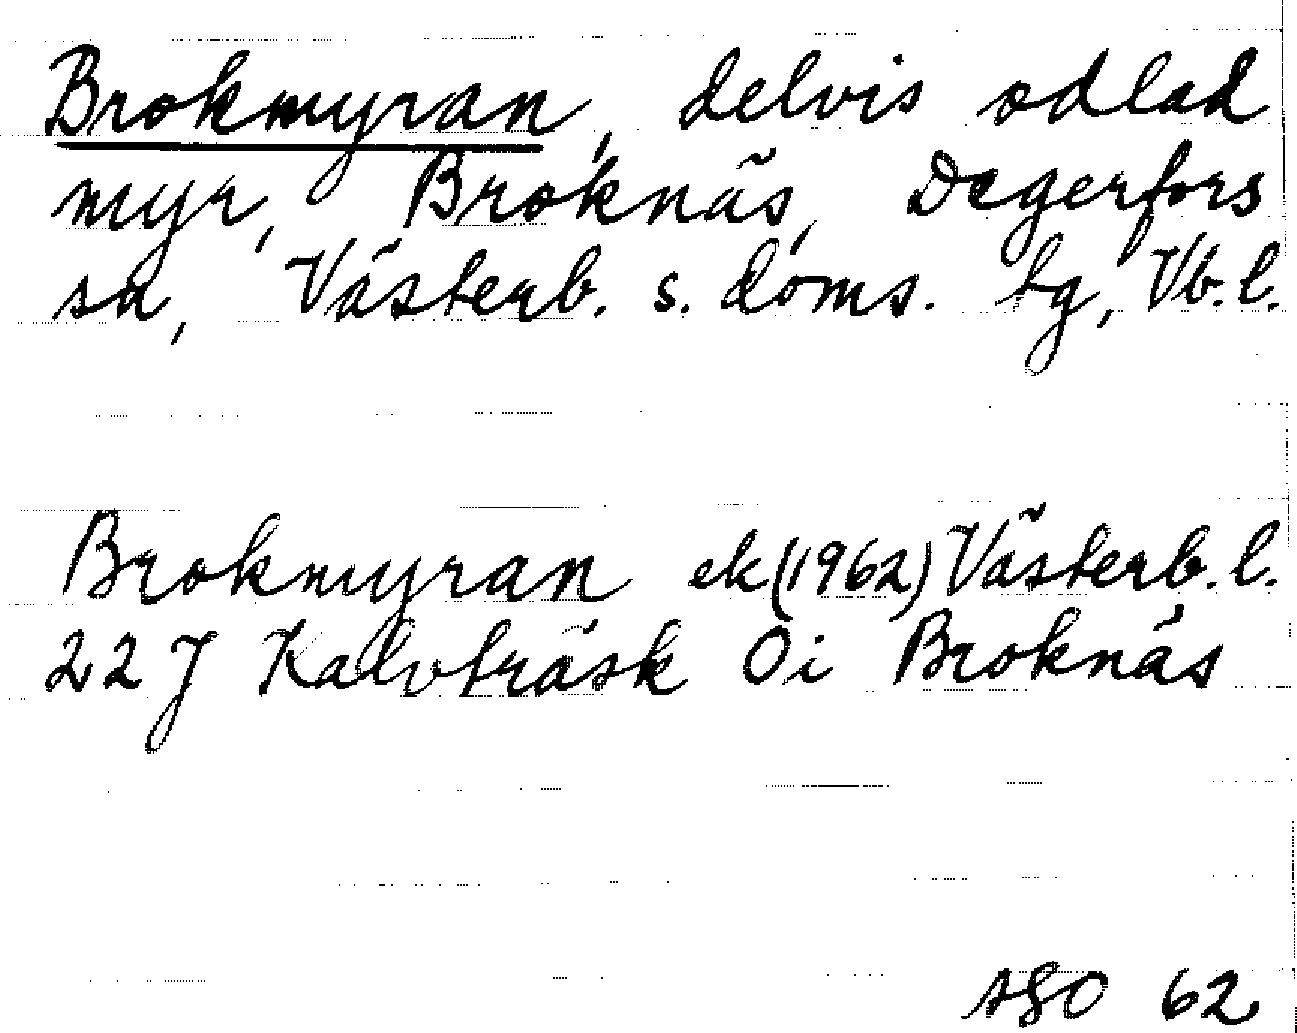 Brokmyran, delvis odlad
myr, Broknäs, Degerfors
sn, Västerb. s. doms. tg, Vb.l.
Brokmyran ek (1962) Västerb. l.
22 J Kalvträsk Öi Broknäs
62